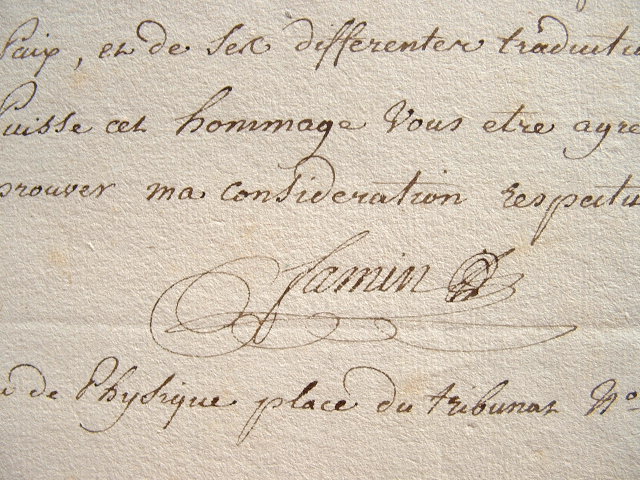 Paix, et de ses differentes traducti
Puisse cet hommage Vous etre agre
prouver ma consideration respectu
Jamin
de Physique place du tribunat No